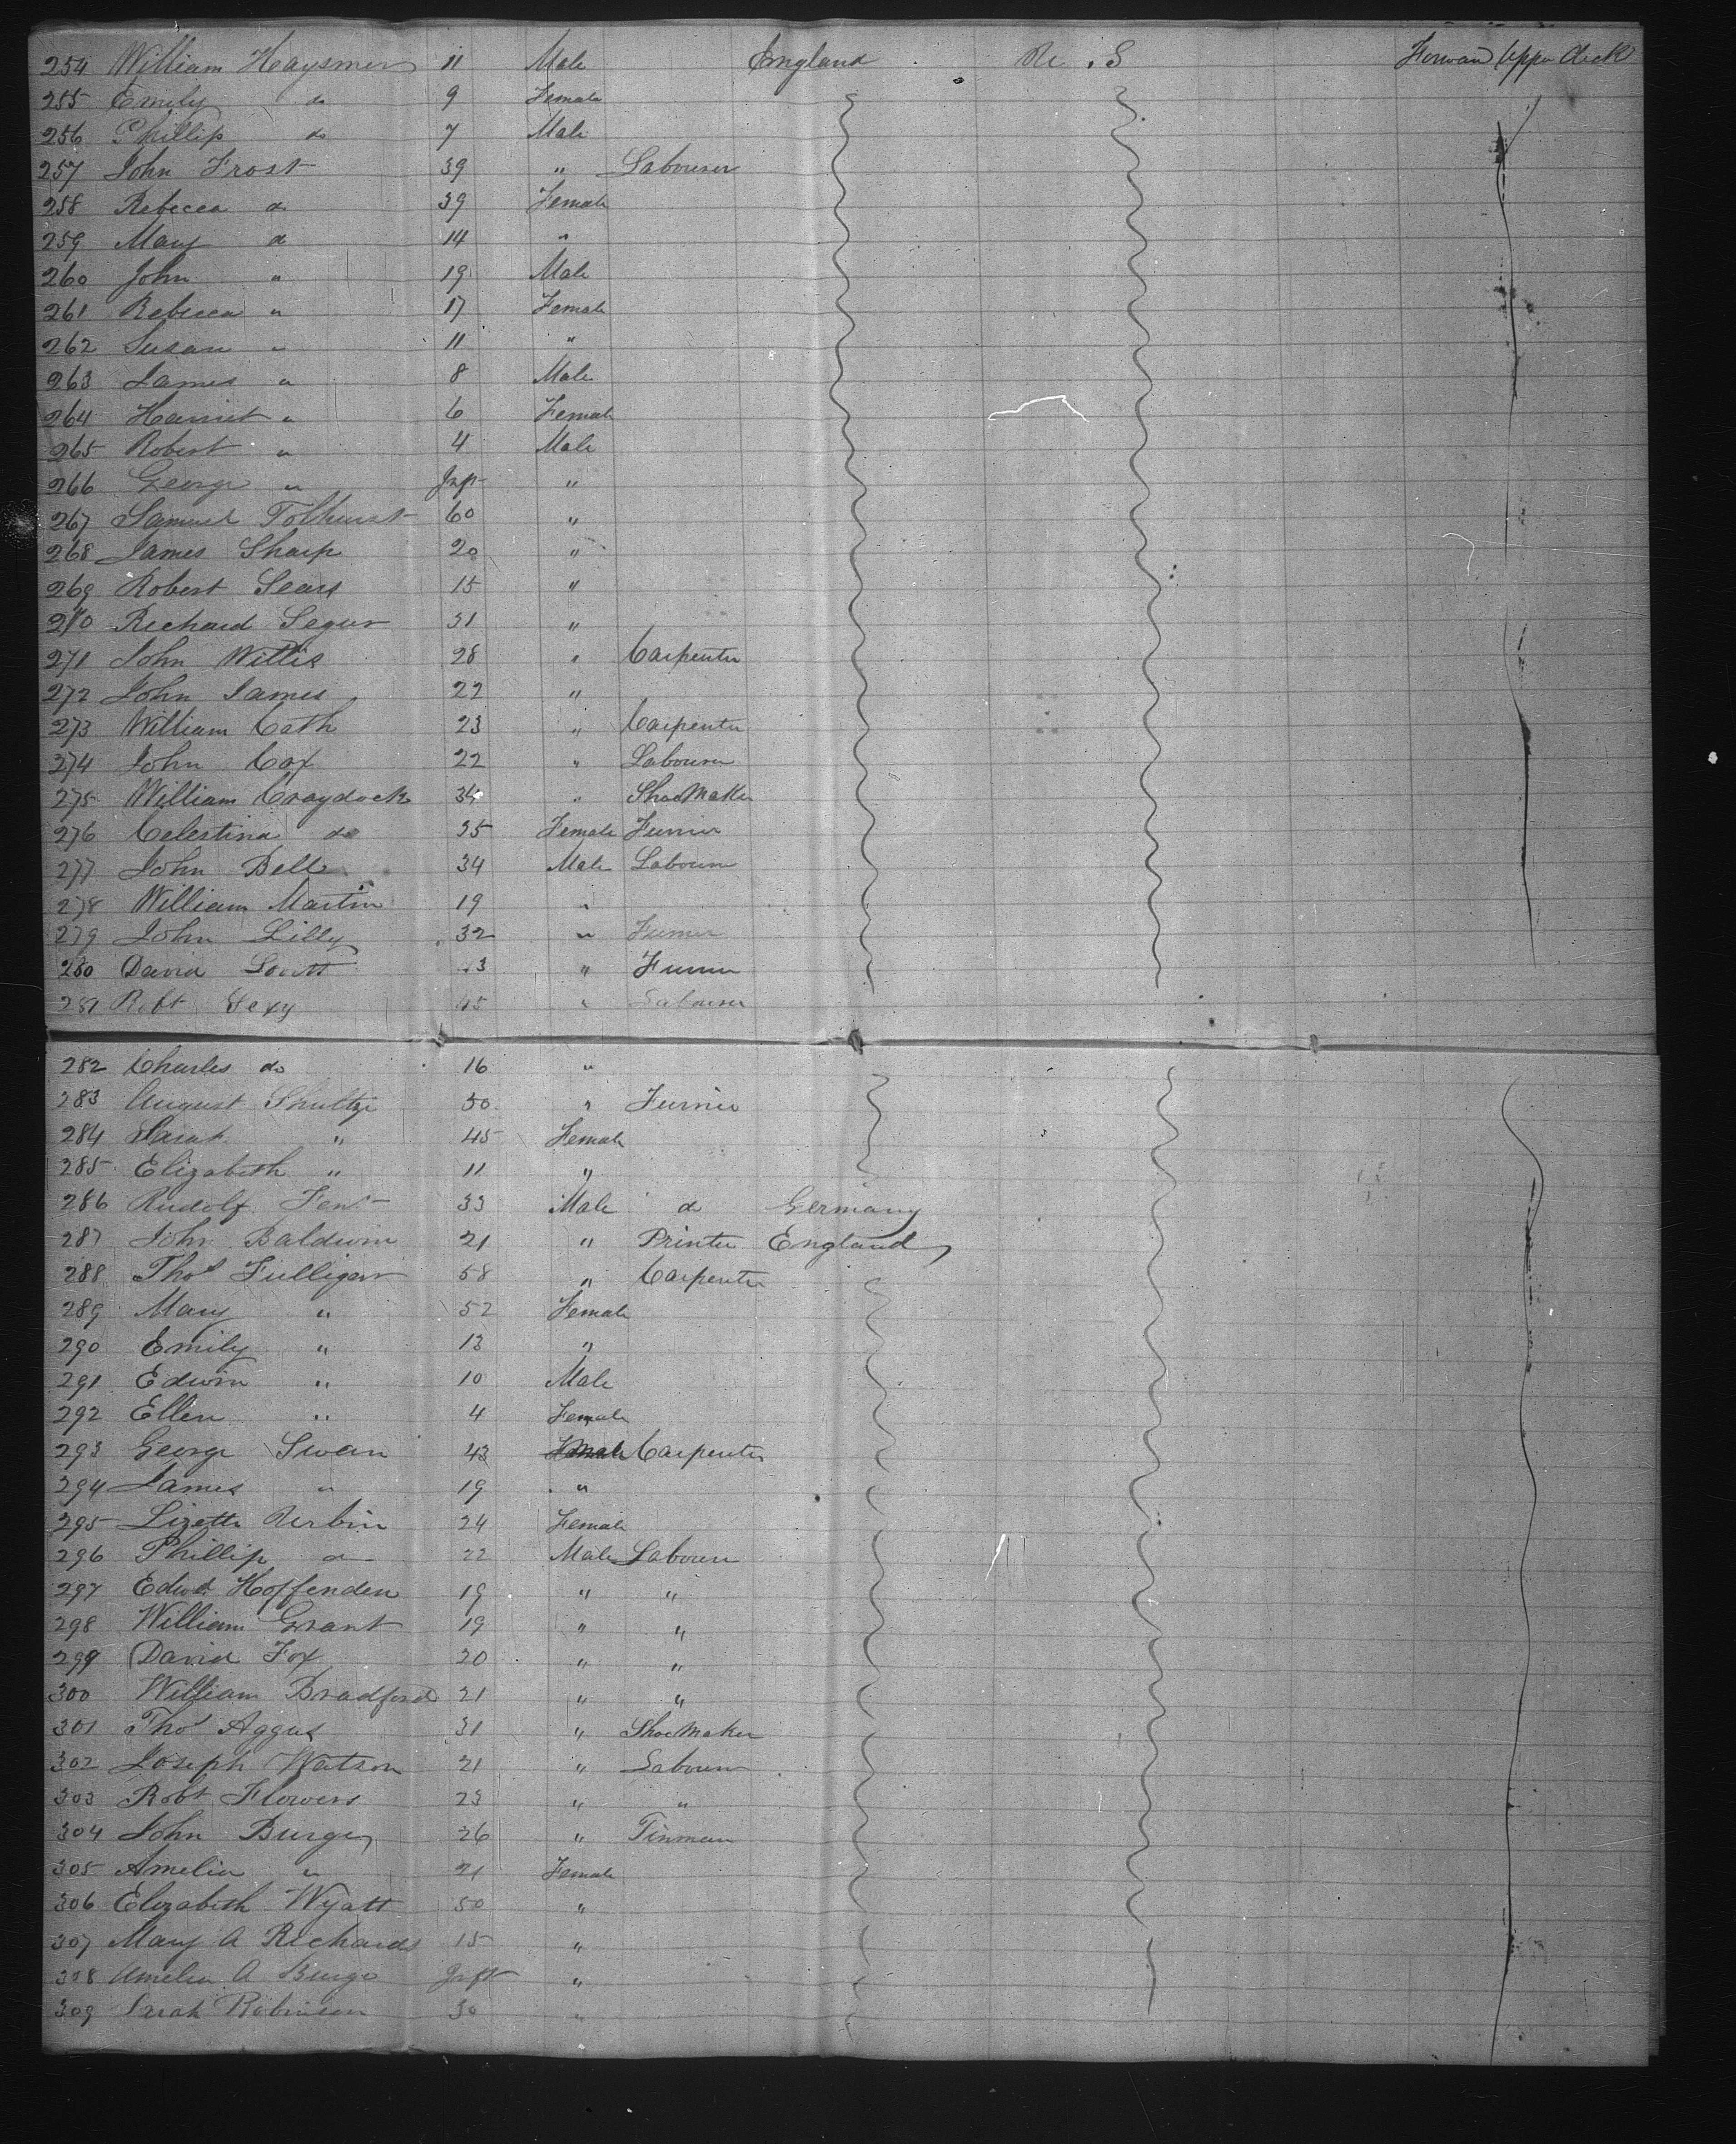 254 William Haysmer 11 Male England U. S Forward Upper deck
255 Emily do 9 Female
256 Phillip do 7 Male
257 John Frost 39 " Labourer
258 Rebecca do 39 Female
259 Mary do 14 "
260 John " 19 Male
261 Rebecca " 17 Female
262 Susan " 11 "
263 James " 8 Male
264 Harriet " 6 Female
265 Robert " 4 Male
266 George " Inft "
267 Samuel Tolhurst 60 "
268 James Sharp 20 "
269 Robert Sears 15 "
270 Richard Segur 31 "
271 John Willis 28 " Carpenter
272 John James 22 "
273 William Cath 23 " Carpenter
274 John Cox 22 " Labourer
275 William Craydock 34 " Shoemaker
276 Celestina do 35 Female Furrier
277 John Bell 34 Male Labourer
278 William Martin 19 "
279 John Lilly 32 " Furrier
280 David 43 " Furrier
281 Robt Vexy 45 " Labourer
282 Charles do 16 "
283 August Shultze 50 " Furrier
284 Sarah " 45 Female
285 Elizabeth " 11 "
286 Rudolf 33 Male do Germany
287 John Baldwin 21 " Printer England
288 Thos Fulligar 58 " Carpenter
289 Mary " 52 Female
290 Emily " 13 "
291 Edwin " 10 Male
292 Ellen " 4 Female
293 George Swan 43 Male Carpenter
294 James " 19 "
295 Lizette Urbin 24 Female
296 Phillip do 22 Male Labourer
297 Edwd Hoffenden 19 " "
298 William Grant 19 " "
299 David Fox 20 " "
300 William Bradford 21 " "
301 Thos Aggus 31 " Shoemaker
302 Joseph Watson 21 " Labourer
303 Robt Flowers 23 " "
304 John Burge 26 " Tinman
305 Amelia " 21 Female
306 Elizabeth Wyatt 50 "
307 Mary A Richards 15 "
308 Amelia A Burge Inft "
309 Sarah Robinson 30 "